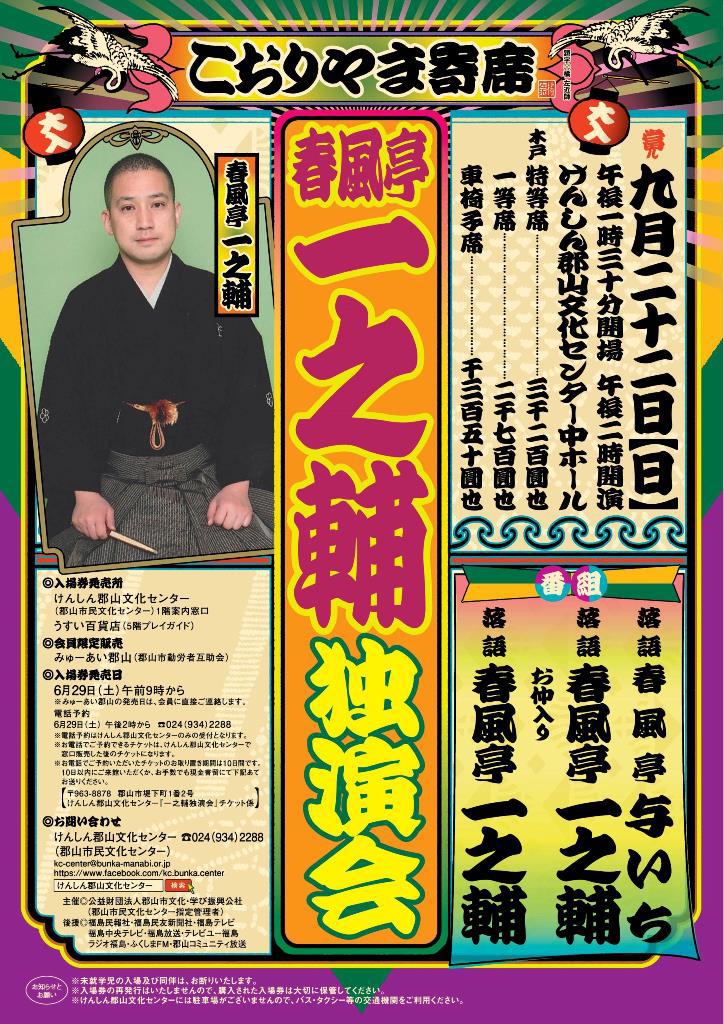 こおりやま寄席
題字 橘 左近師
大入
大入
九月二十二日【日】
午後一時三十分開場 午後二時開演
けんしん郡山文化センター中ホール
木戸 特等席……三千二百圓也
一等席……二千七百圓也
車椅子席……千三百五十圓也
春風亭 一之輔 独演会
春風亭 一之輔
番組
落語 春風亭 与いち
落語 春風亭 一之輔
お仲入り
落語 春風亭 一之輔
◎入場券発売所
けんしん郡山文化センター
(郡山市民文化センター)1階案内窓口
うすい百貨店(5階プレイガイド)
◎会員限定販売
みゅーあい郡山(郡山市勤労者互助会)
◎入場券発売日
6月29日(土)午前9時から
※みゅーあい郡山の発売日は、会員に直接ご連絡します。
電話予約
6月29日(土) 午後2時から ☎024(934)2288
※電話予約はけんしん郡山文化センターのみの受付となります。
※お電話でご予約できるチケットは、けんしん郡山文化センターで
窓口販売した後のチケットになります。
※お電話でご予約いただいたチケットのお取り置き期間は10日間です。
10日以内にご来館いただくか、お手数でも現金書留にて下記あて
お送りください。
【〒963-8878 郡山市堤下町1番2号
けんしん郡山文化センター「一之輔独演会」チケット係】
◎お問い合わせ
けんしん郡山文化センター ☎024(934)2288
(郡山市民文化センター)
kc-center@bunka-manabi.or.jp
https://www.facebook.com/kc.bunka.center
けんしん郡山文化センター 検索
主催◎公益財団法人郡山市文化・学び振興公社
(郡山市民文化センター指定管理者)
後援◎福島民報社・福島民友新聞社・福島テレビ
福島中央テレビ・福島放送・テレビユー福島
ラジオ福島・ふくしまFM・郡山コミュニティ放送
お知らせと
お願い
※未就学児の入場及び同伴は、お断りいたします。
※入場券の再発行はいたしませんので、購入された入場券は大切に保管してください。
※けんしん郡山文化センターには駐車場がございませんので、バス・タクシー等の交通機関をご利用ください。